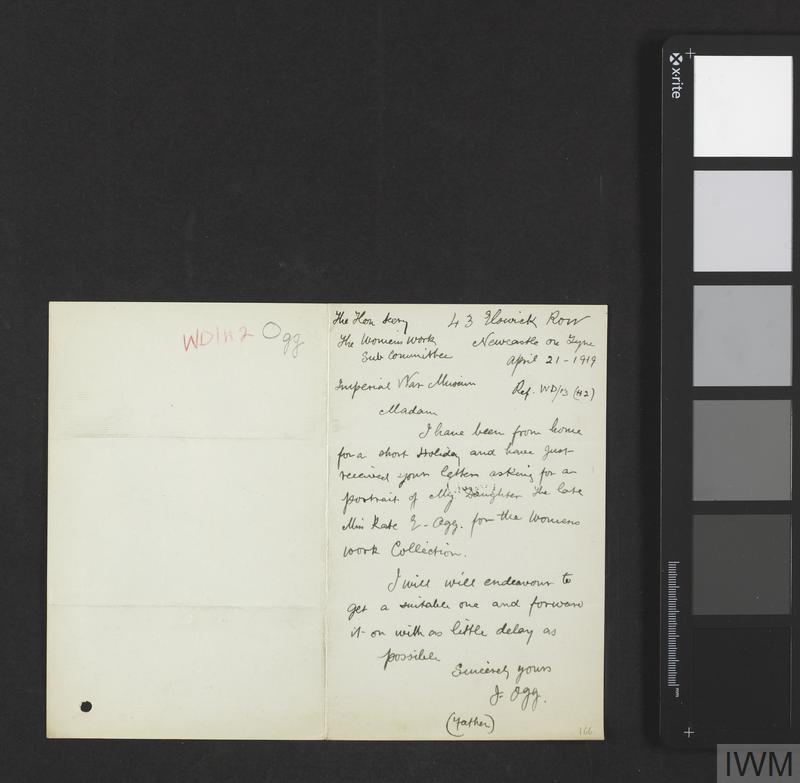 WD/H2 Ogg
The Hon Secy
43 Elswick Row
The Womens Work
Newcastle on Tyne
Sub Committee
April 21 - 1919
Imperial War Museum
Ref. WD/13 (H2)
Madam
I have been from home
for a short Holiday and have just
received your letter asking for a
portrait of My Daughter the late
Miss Kate E. Ogg. for the Womens
work Collection.
I will will endeavour to
get a suitable one and forward
it on with as little delay as
possible
Sincerely yours
J. Ogg.
(Father)
166
x-rite
mm
IWM